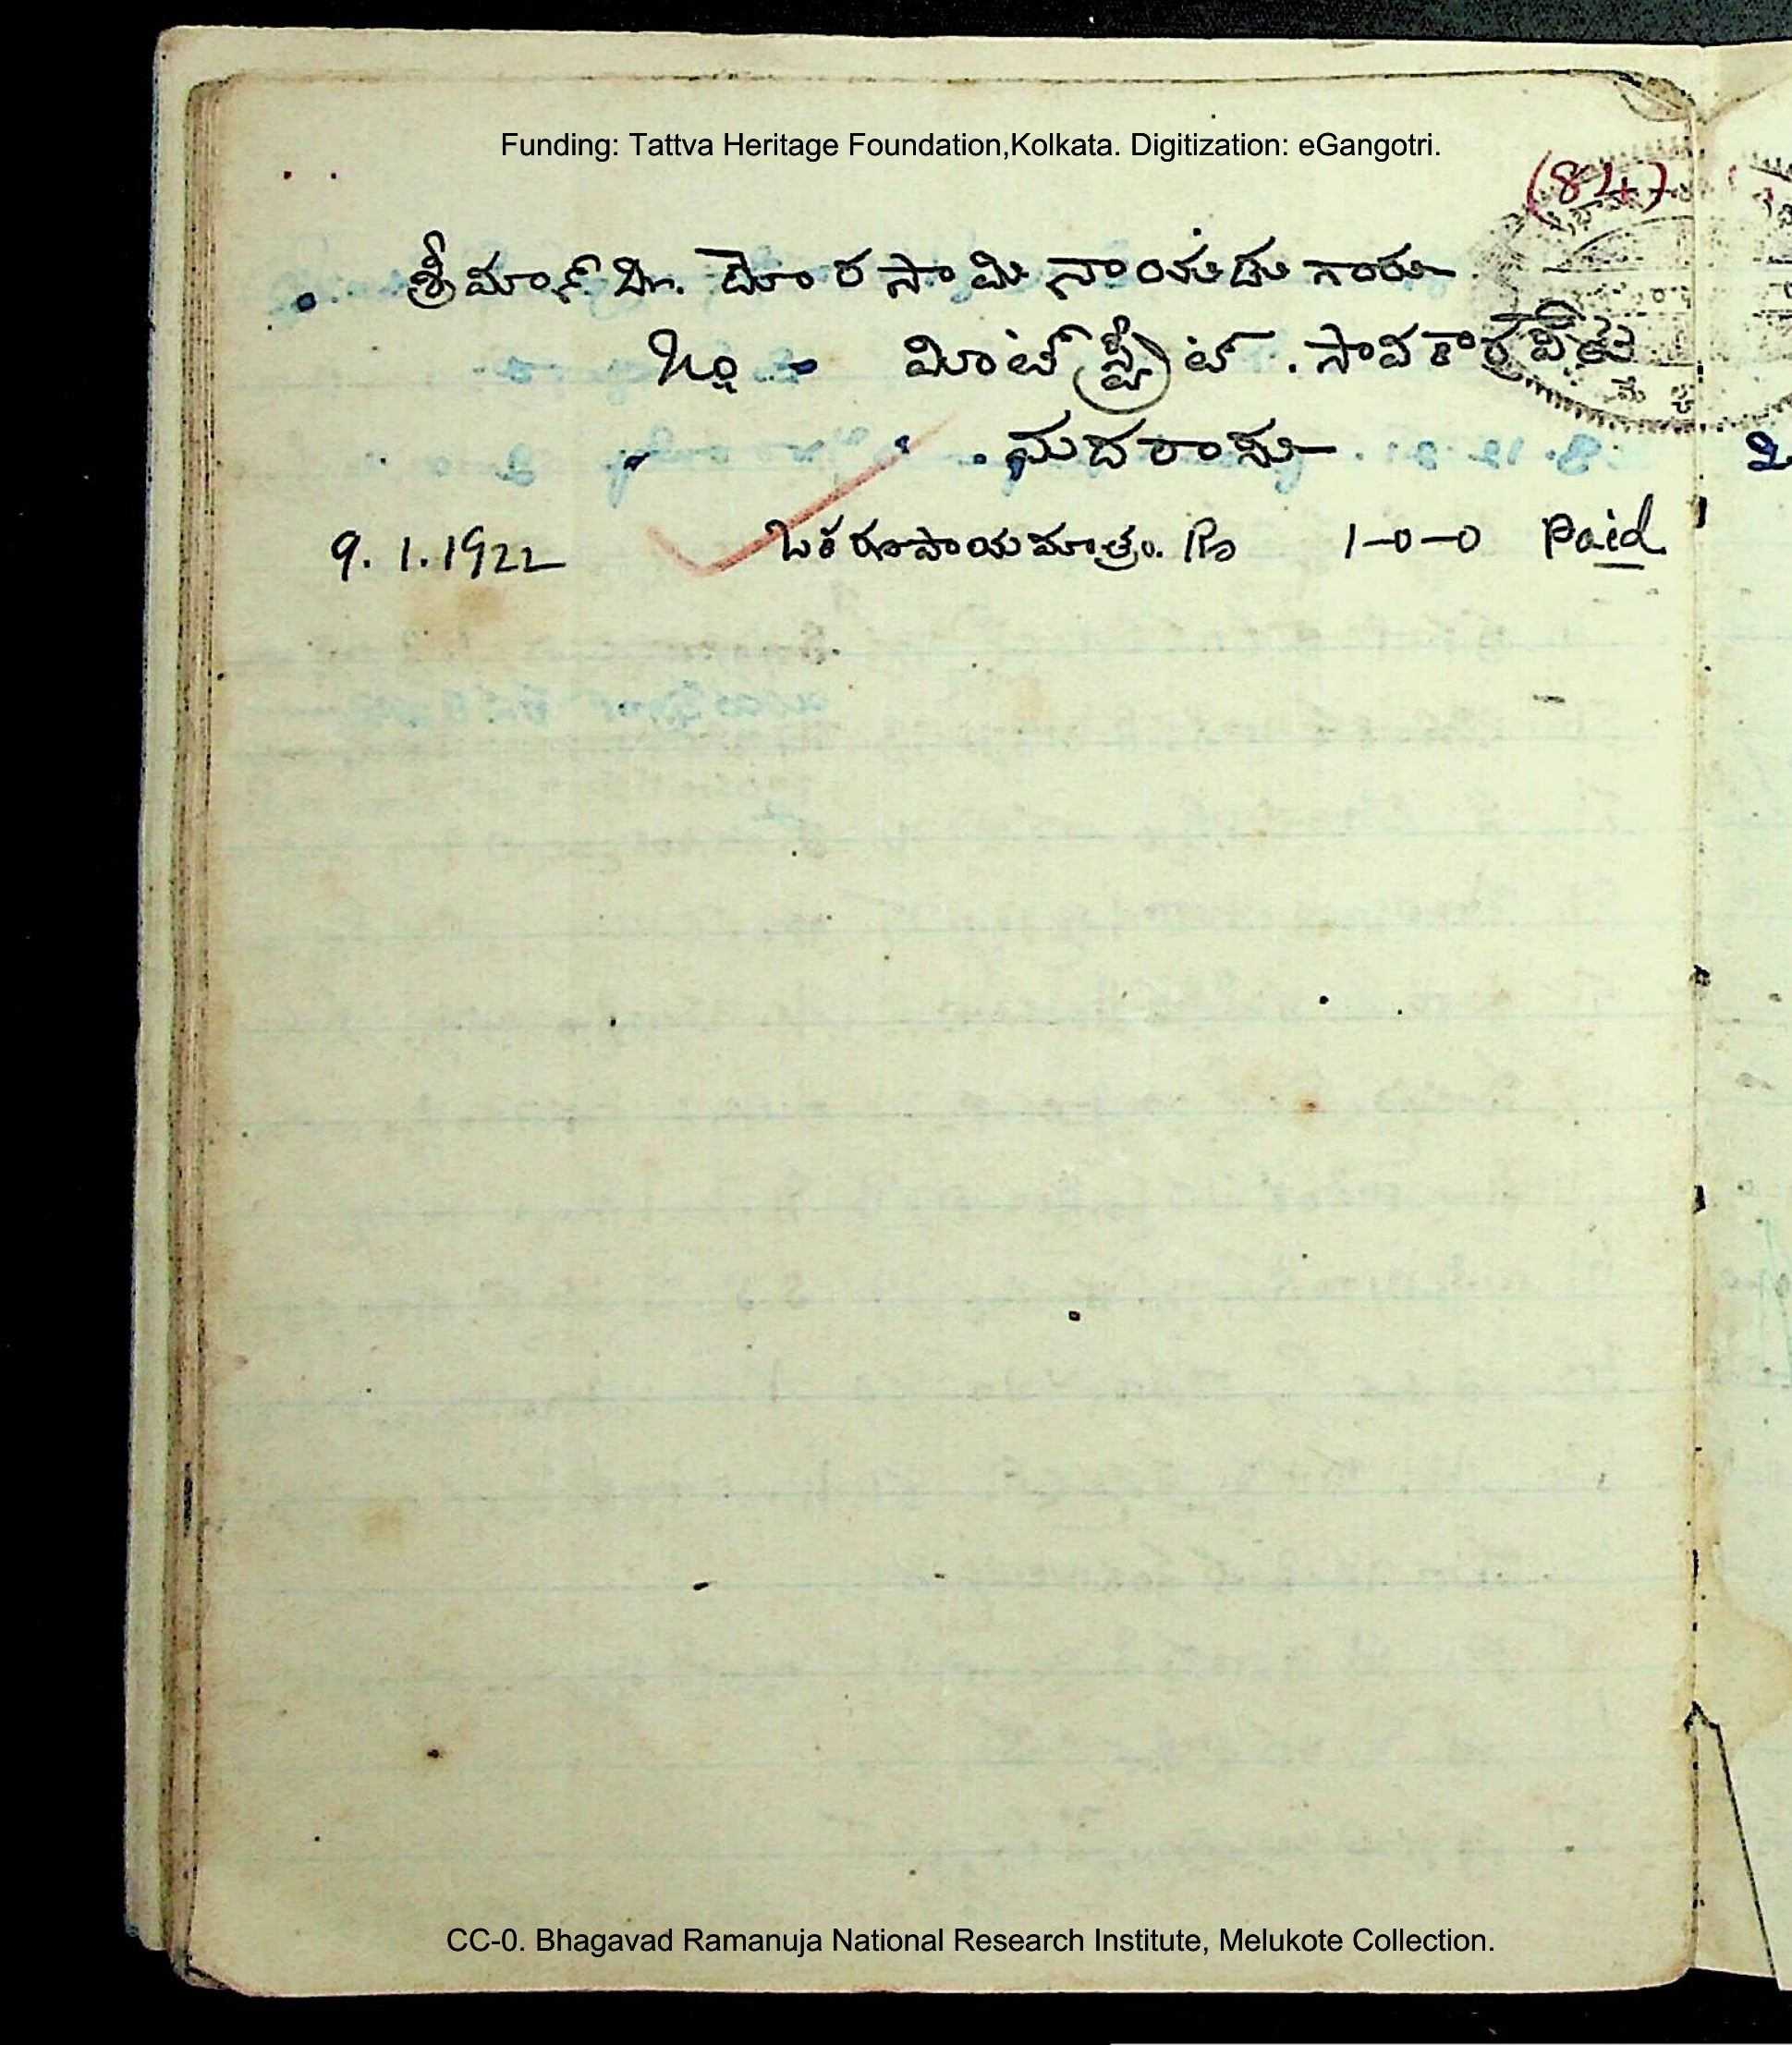 Funding: Tattva Heritage Foundation,Kolkata. Digitization: eGangotri.
(84)
శ్రీమాన్ దొరసామి నాయడు గారు
మింట్ స్ట్రీట్. సావకార్పేట
మదరాసు
9.1.1922 ఒకరూపాయమాత్రం. Rs 1-0-0 Paid
CC-0. Bhagavad Ramanuja National Research Institute, Melukote Collection.